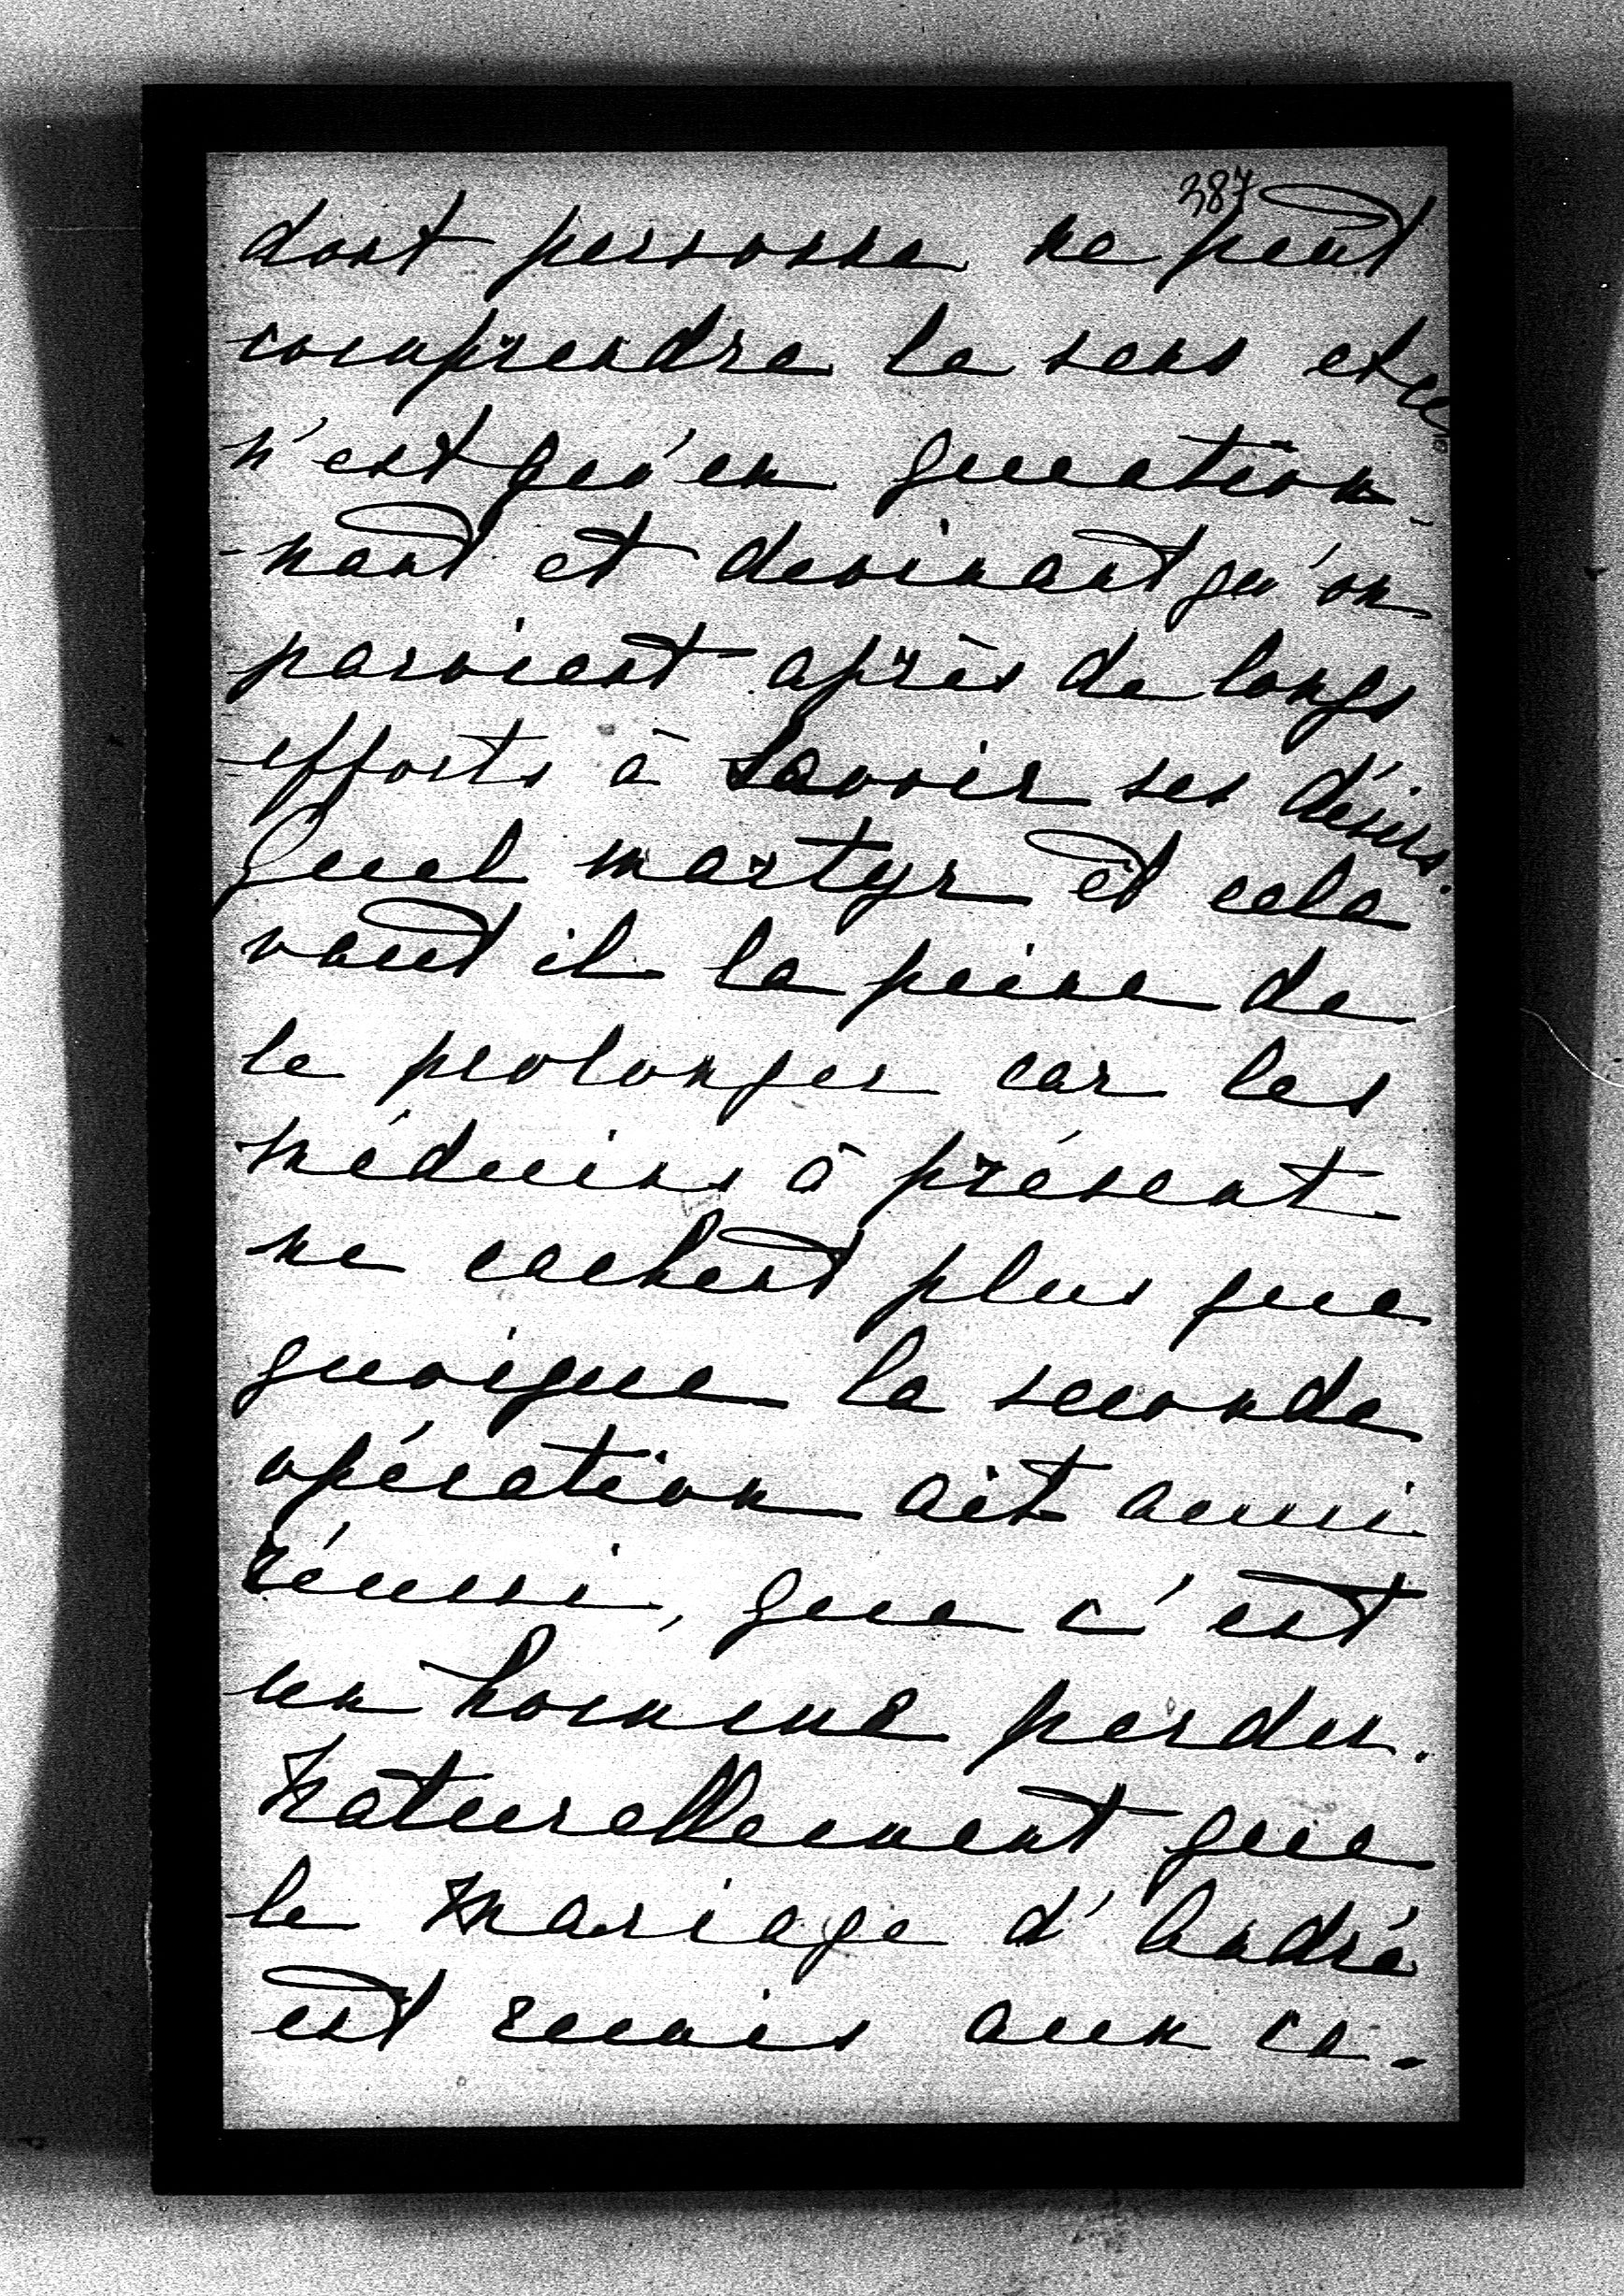 387
dont personne ne peut
comprendre le sens et ce
n'est qu'en question-
-nant et devinant qu'on
parvient après de longs
efforts à savoir ses désirs.
Quel martyr et cela
vaut il la peine de
le prolonger car les
médecins à présent
ne cachent plus que
quoique la seconde
opération ait aussi
réussi, que c'est
un homme perdu.
Naturellement que
le mariage d'André
est remis aux ca-